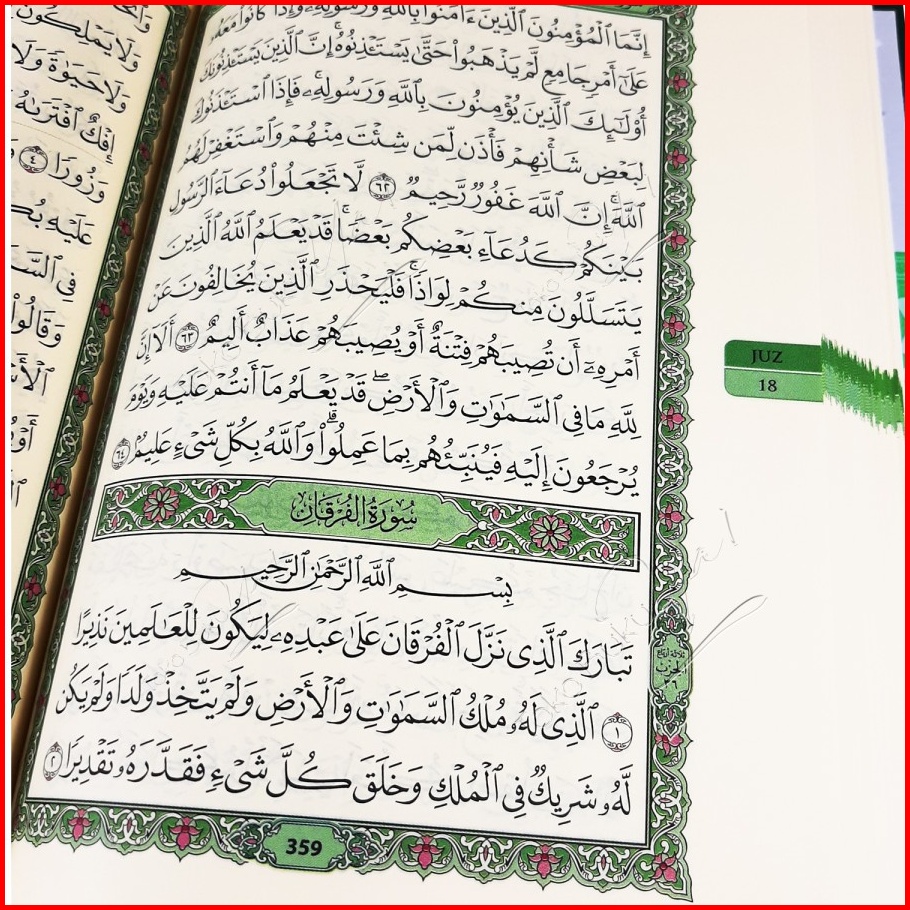 إِنَّمَا ٱلْمُؤْمِنُونَ ٱلَّذِينَ ءَامَنُوا۟ بِٱللَّهِ وَرَسُولِهِۦ وَإِذَا كَانُوا۟ مَعَهُۥ
عَلَىٰٓ أَمْرٍ جَامِعٍ لَّمْ يَذْهَبُوا۟ حَتَّىٰ يَسْتَـْٔذِنُوهُ إِنَّ ٱلَّذِينَ يَسْتَـْٔذِنُونَكَ
أُو۟لَـٰٓئِكَ ٱلَّذِينَ يُؤْمِنُونَ بِٱللَّهِ وَرَسُولِهِۦ ۚ فَإِذَا ٱسْتَـْٔذَنُوكَ
لِبَعْضِ شَأْنِهِمْ فَأْذَن لِّمَن شِئْتَ مِنْهُمْ وَٱسْتَغْفِرْ لَهُمُ
ٱللَّهَ ۚ إِنَّ ٱللَّهَ غَفُورٌ رَّحِيمٌ ٦٢ لَّا تَجْعَلُوا۟ دُعَآءَ ٱلرَّسُولِ
بَيْنَكُمْ كَدُعَآءِ بَعْضِكُم بَعْضًا ۚ قَدْ يَعْلَمُ ٱللَّهُ ٱلَّذِينَ
يَتَسَلَّلُونَ مِنكُمْ لِوَاذًا ۚ فَلْيَحْذَرِ ٱلَّذِينَ يُخَالِفُونَ عَنْ
أَمْرِهِۦٓ أَن تُصِيبَهُمْ فِتْنَةٌ أَوْ يُصِيبَهُمْ عَذَابٌ أَلِيمٌ ٦٣ أَلَآ إِنَّ
لِلَّهِ مَا فِى ٱلسَّمَـٰوَٰتِ وَٱلْأَرْضِ ۖ قَدْ يَعْلَمُ مَآ أَنتُمْ عَلَيْهِ وَيَوْمَ
يُرْجَعُونَ إِلَيْهِ فَيُنَبِّئُهُم بِمَا عَمِلُوا۟ ۗ وَٱللَّهُ بِكُلِّ شَىْءٍ عَلِيمٌۢ ٦٤
سُورَةُ الفُرْقَان
بِسْمِ ٱللَّهِ ٱلرَّحْمَـٰنِ ٱلرَّحِيمِ
تَبَارَكَ ٱلَّذِى نَزَّلَ ٱلْفُرْقَانَ عَلَىٰ عَبْدِهِۦ لِيَكُونَ لِلْعَـٰلَمِينَ نَذِيرًا
١ ٱلَّذِى لَهُۥ مُلْكُ ٱلسَّمَـٰوَٰتِ وَٱلْأَرْضِ وَلَمْ يَتَّخِذْ وَلَدًا وَلَمْ يَكُن
لَّهُۥ شَرِيكٌ فِى ٱلْمُلْكِ وَخَلَقَ كُلَّ شَىْءٍ فَقَدَّرَهُۥ تَقْدِيرًا ٢
359
JUZ
18
ثلاثة أرباع
الحزب
وَلَا يَمْلِكُونَ
وَلَا حَيَوٰةً وَلَا
إِفْكٌ ٱفْتَرَىٰهُ
وَزُورًا ٤
عَلَيْهِ
فِى
وَقَالُوا۟